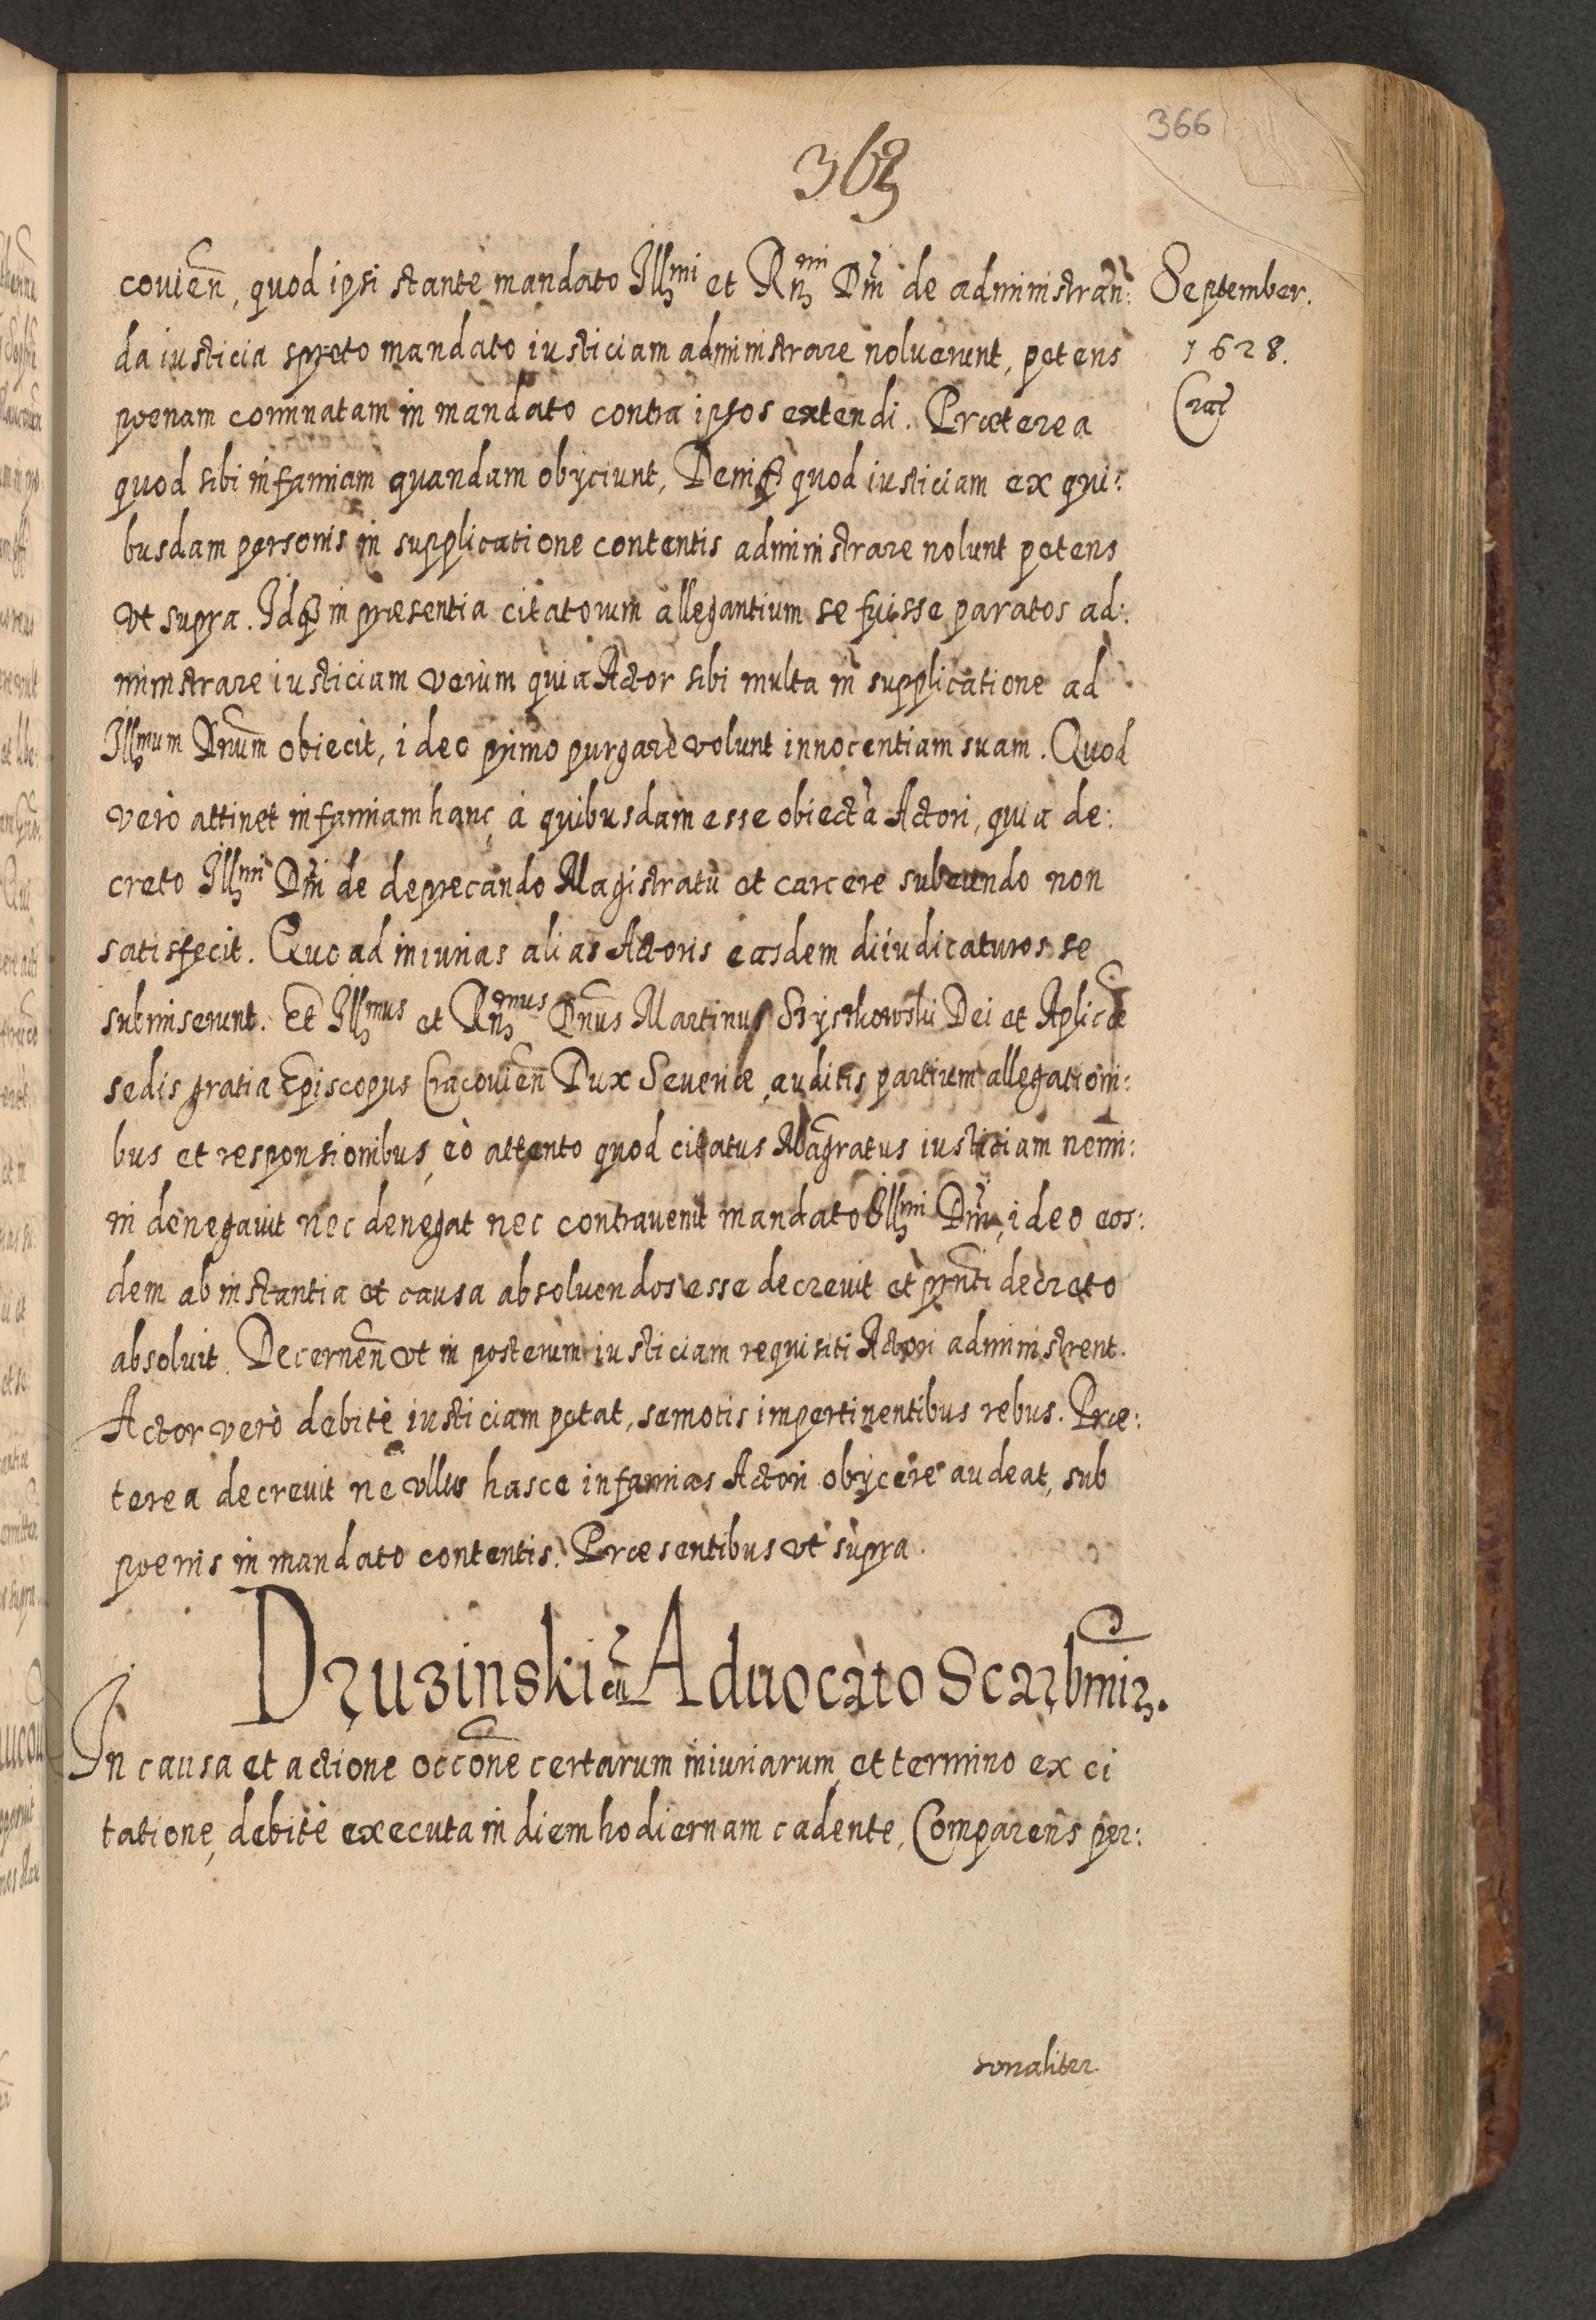 366
363
couien̄, quod ipsi stante mandato Illmi et Rn̄mi Dn̄i de administran:
September.
da iusticia spreto mandato iusticiam administrare noluerunt, petens
1628.
poenam comminatam in mandato contra ipsos extendi. Præterea
Crac
quod sibi infamiam quandam obijciunt, Deniqꝫ quod iusticiam ex qui:
busdam personis in supplicatione contentis administrare nolunt petens
vt supra. Idqꝫ in presentia citatorum allegantium se fuisse paratos ad:
ministrare iusticiam verùm quia Actor sibi multa in supplicatione ad
Illmum Dnum obiecit, ideo primo purgare volunt innocentiam suam. Quod
verò attinet infamiam hanc à quibusdam esse obiectā Actori, quia de:
creto Illmi Dn̄i de deprecando Magistratu et carcere subeundo non
satisfecit. Quo ad iniurias alias Actoris easdem diiudicaturos se
submiserunt. Et Illmus et Rn̄mus Dnus Martinus Szyszkowski Dei et Aplicæ
sedis gratia Episcopus Cracouien̄ Dux Seueriæ, auditis partium allegationi:
bus et responsionibus, eò attento quod citatus Magratus iusticiam nemi:
ni denegauit nec denegat nec contrauenit mandato Illmi Dn̄i, ideo eos:
dem ab instantia et causa absoluendos esse decreuit et pn̄ti decreto
absoluit. Decernen̄ vt in posterum iusticiam requisiti Actori administrent.
Actor verò debitè iusticiam petat, semotis impertinentibus rebus. Præ:
terea decreuit ne vllus hasce infamias Actori obijcere audeat, sub
poenis in mandato contentis. Præsentibus vt supra.
Druzinski cū Aduocato Scarbmir.
In causa et actione occōne certarum iniuriarum et termino ex ci
tatione, debitè executa in diem hodiernam cadente, Comparens per:
sonaliter